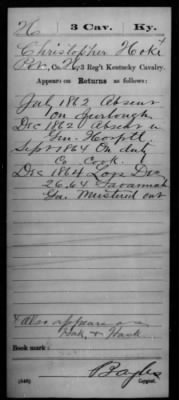 H 3 Cav. Ky.
Christopher Hoke
Pvt., Co. H, 3 Reg't Kentucky Cavalry.
Appears on
Returns as follows:
July 1862 Absent
on furlough
Dec 1862 Absent in
Gen. Hospt
Sept 1864 On duty
Co Cook.
Dec 1864 Loss Dec
26.64 Savannah
Ga. Mustered out
Also appears as
Hok &
Book mark:
(546)
Bayles
Copyist.